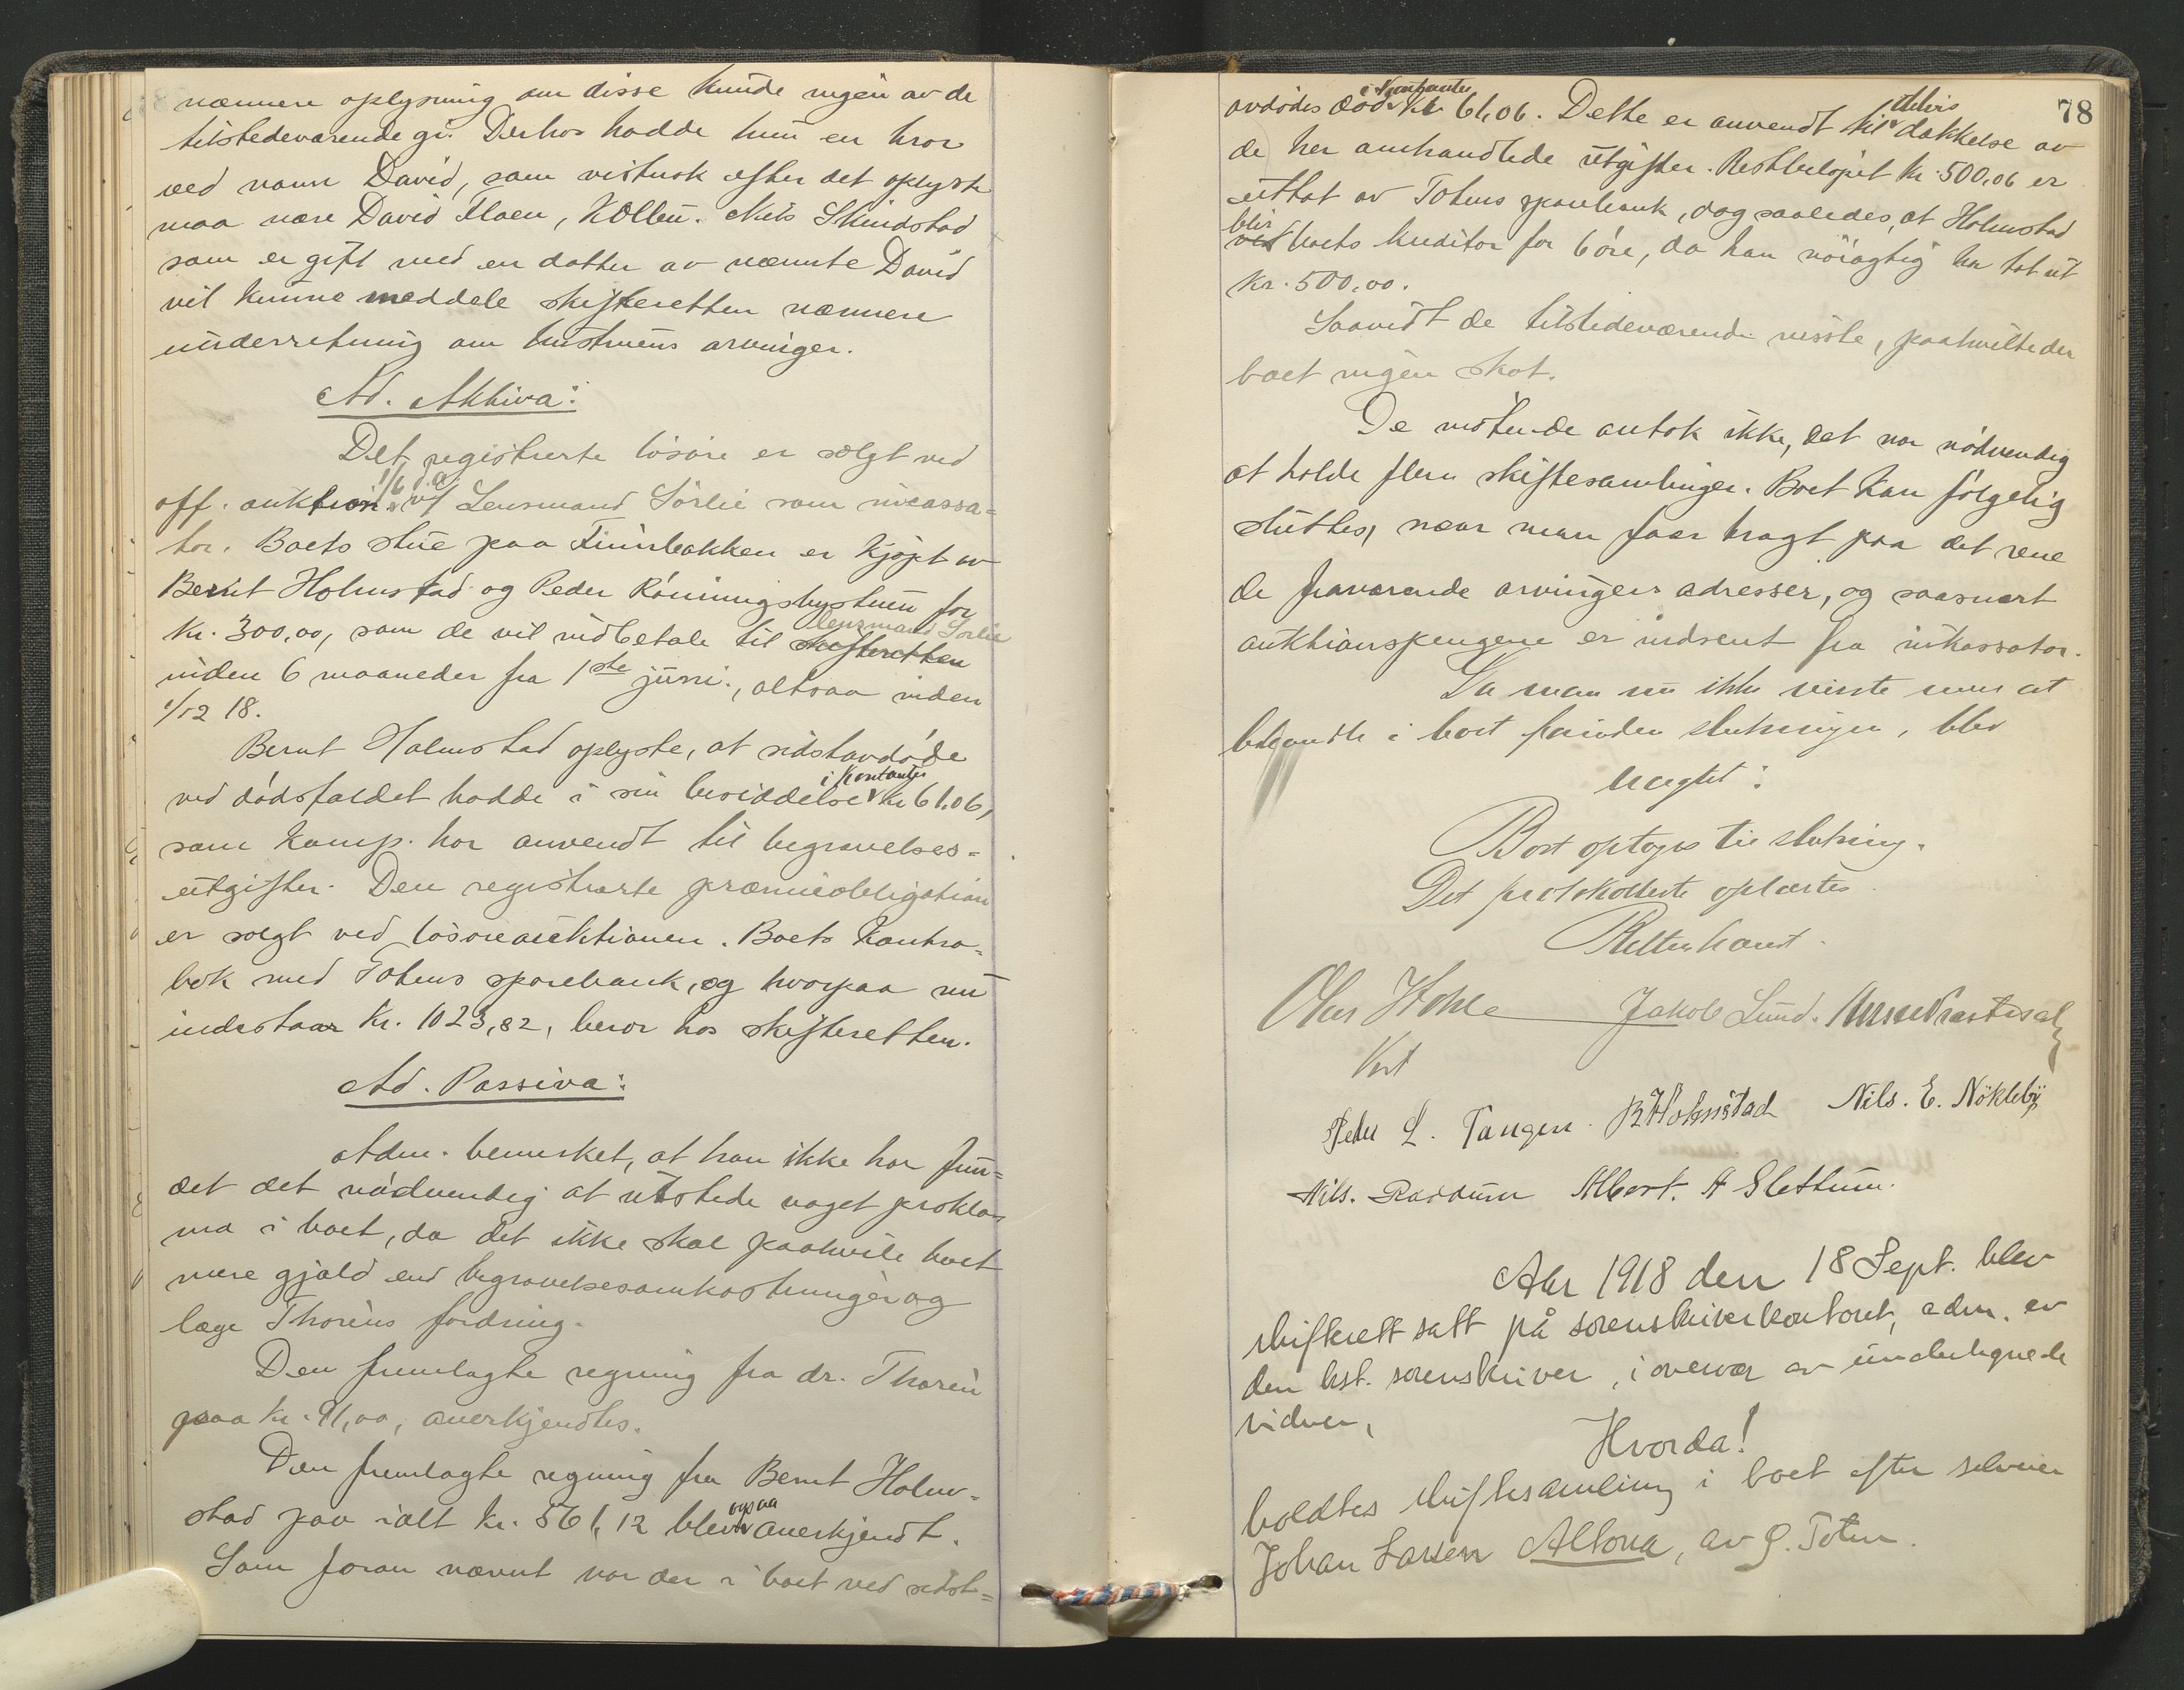 nærmere oplysning om disse kunde ingen av de
tilstedeværende gi. Derhos hadde hun en bror
ved navn David, som vistnok efter det oplyste
maa være David Flaen, Kolbu. Nils Skindstad
som er gift med en datter av nævnte David
vil kunne meddele skifteretten nærmere
underretning om hustruens arvinger.
Ad. Aktiva:
Det registrerte løsøre er solgt ved
off. auktion 1/6 d.a. v/ Lensmand Sørlie som incassa=
tor. Boets stue paa Finnbakken er kjøpt av
Bernt Holmstad og Peder Rønningsbystuen for
Kr. 300,00, som de vil indbetale til skifteretten lensmand Sørlie
inden 6 maaneder fra 1ste juni, altsaa inden
1/12 18.
Bernt Holmstad oplyste, at sidstavdøde
ved dødsfaldet hadde i sin besiddelse i kontanter kr 61,06,
som komp. har anvendt til begravelses=
utgifter. Den registrerte præmieobligation
er solgt ved løsøreauktionen. Boets kontra=
bok med Totens sparebank, og hvorpaa nu
indestaar Kr. 1023,82, beror hos skifteretten.
Ad. Passiva:
Adm. bemerket, at han ikke har fun=
det det nødvendig at utstede noget prokla=
ma i boet, da det ikke skal paahvile boet
mere gjæld end begravelsesomkostninger og
læge Thorèns fordring.
Den fremlagte regning fra dr. Thorèn
paa kr. 91,00, anerkjendtes.
Den fremlagte regning fra Bernt Holm=
stad paa ialt kr. 561,12 blev ogsaa anerkjendt.
Som foran nævnt var der i boet ved sidst=
78
avdødes død i kontanter kr 61,06. Dette er anvendt til delvis dækkelse av
de her omhandlede utgifter. Restbeløpet kr. 500,06 er
uttat av Totens sparebank, dog saaledes, at Holmstad
blir boets kreditor for 6 øre, da han nøiagtig har tat ut
Kr. 500,00.
Saavidt de tilstedeværende visste, paahvilte der
boet ingen skat.
De møtende antok ikke, det var nødvendig
at holde flere skiftesamlinger. Boet kan følgelig
sluttes, naar man faar bragt paa det rene
de fraværende arvingers adresser, og saasnart
auktionspengene er indsent fra inkassator.
Da man nu ikke visste mer at
behandle i boet forinden slutningen, blev
Boet optoges til slutning.
Det protokollerte oplæstes
Retten hævet.
Olus Hohle Jakob Lund.
Kst
Peder L. Tangen. B Holmstad Nils. E. Nökleby
Nils. Raddum Albert. A Slettum.
Aar 1918 den 18 Sept. blev
skifterett satt på sorenskriverkontoret, adm. av
den kst. sorenskriver, i overvær av undertegnede
vidner,
Hvorda!
holdtes skiftesamling i boet efter selveier
Johan Larsen Altona, av Ø. Toten.